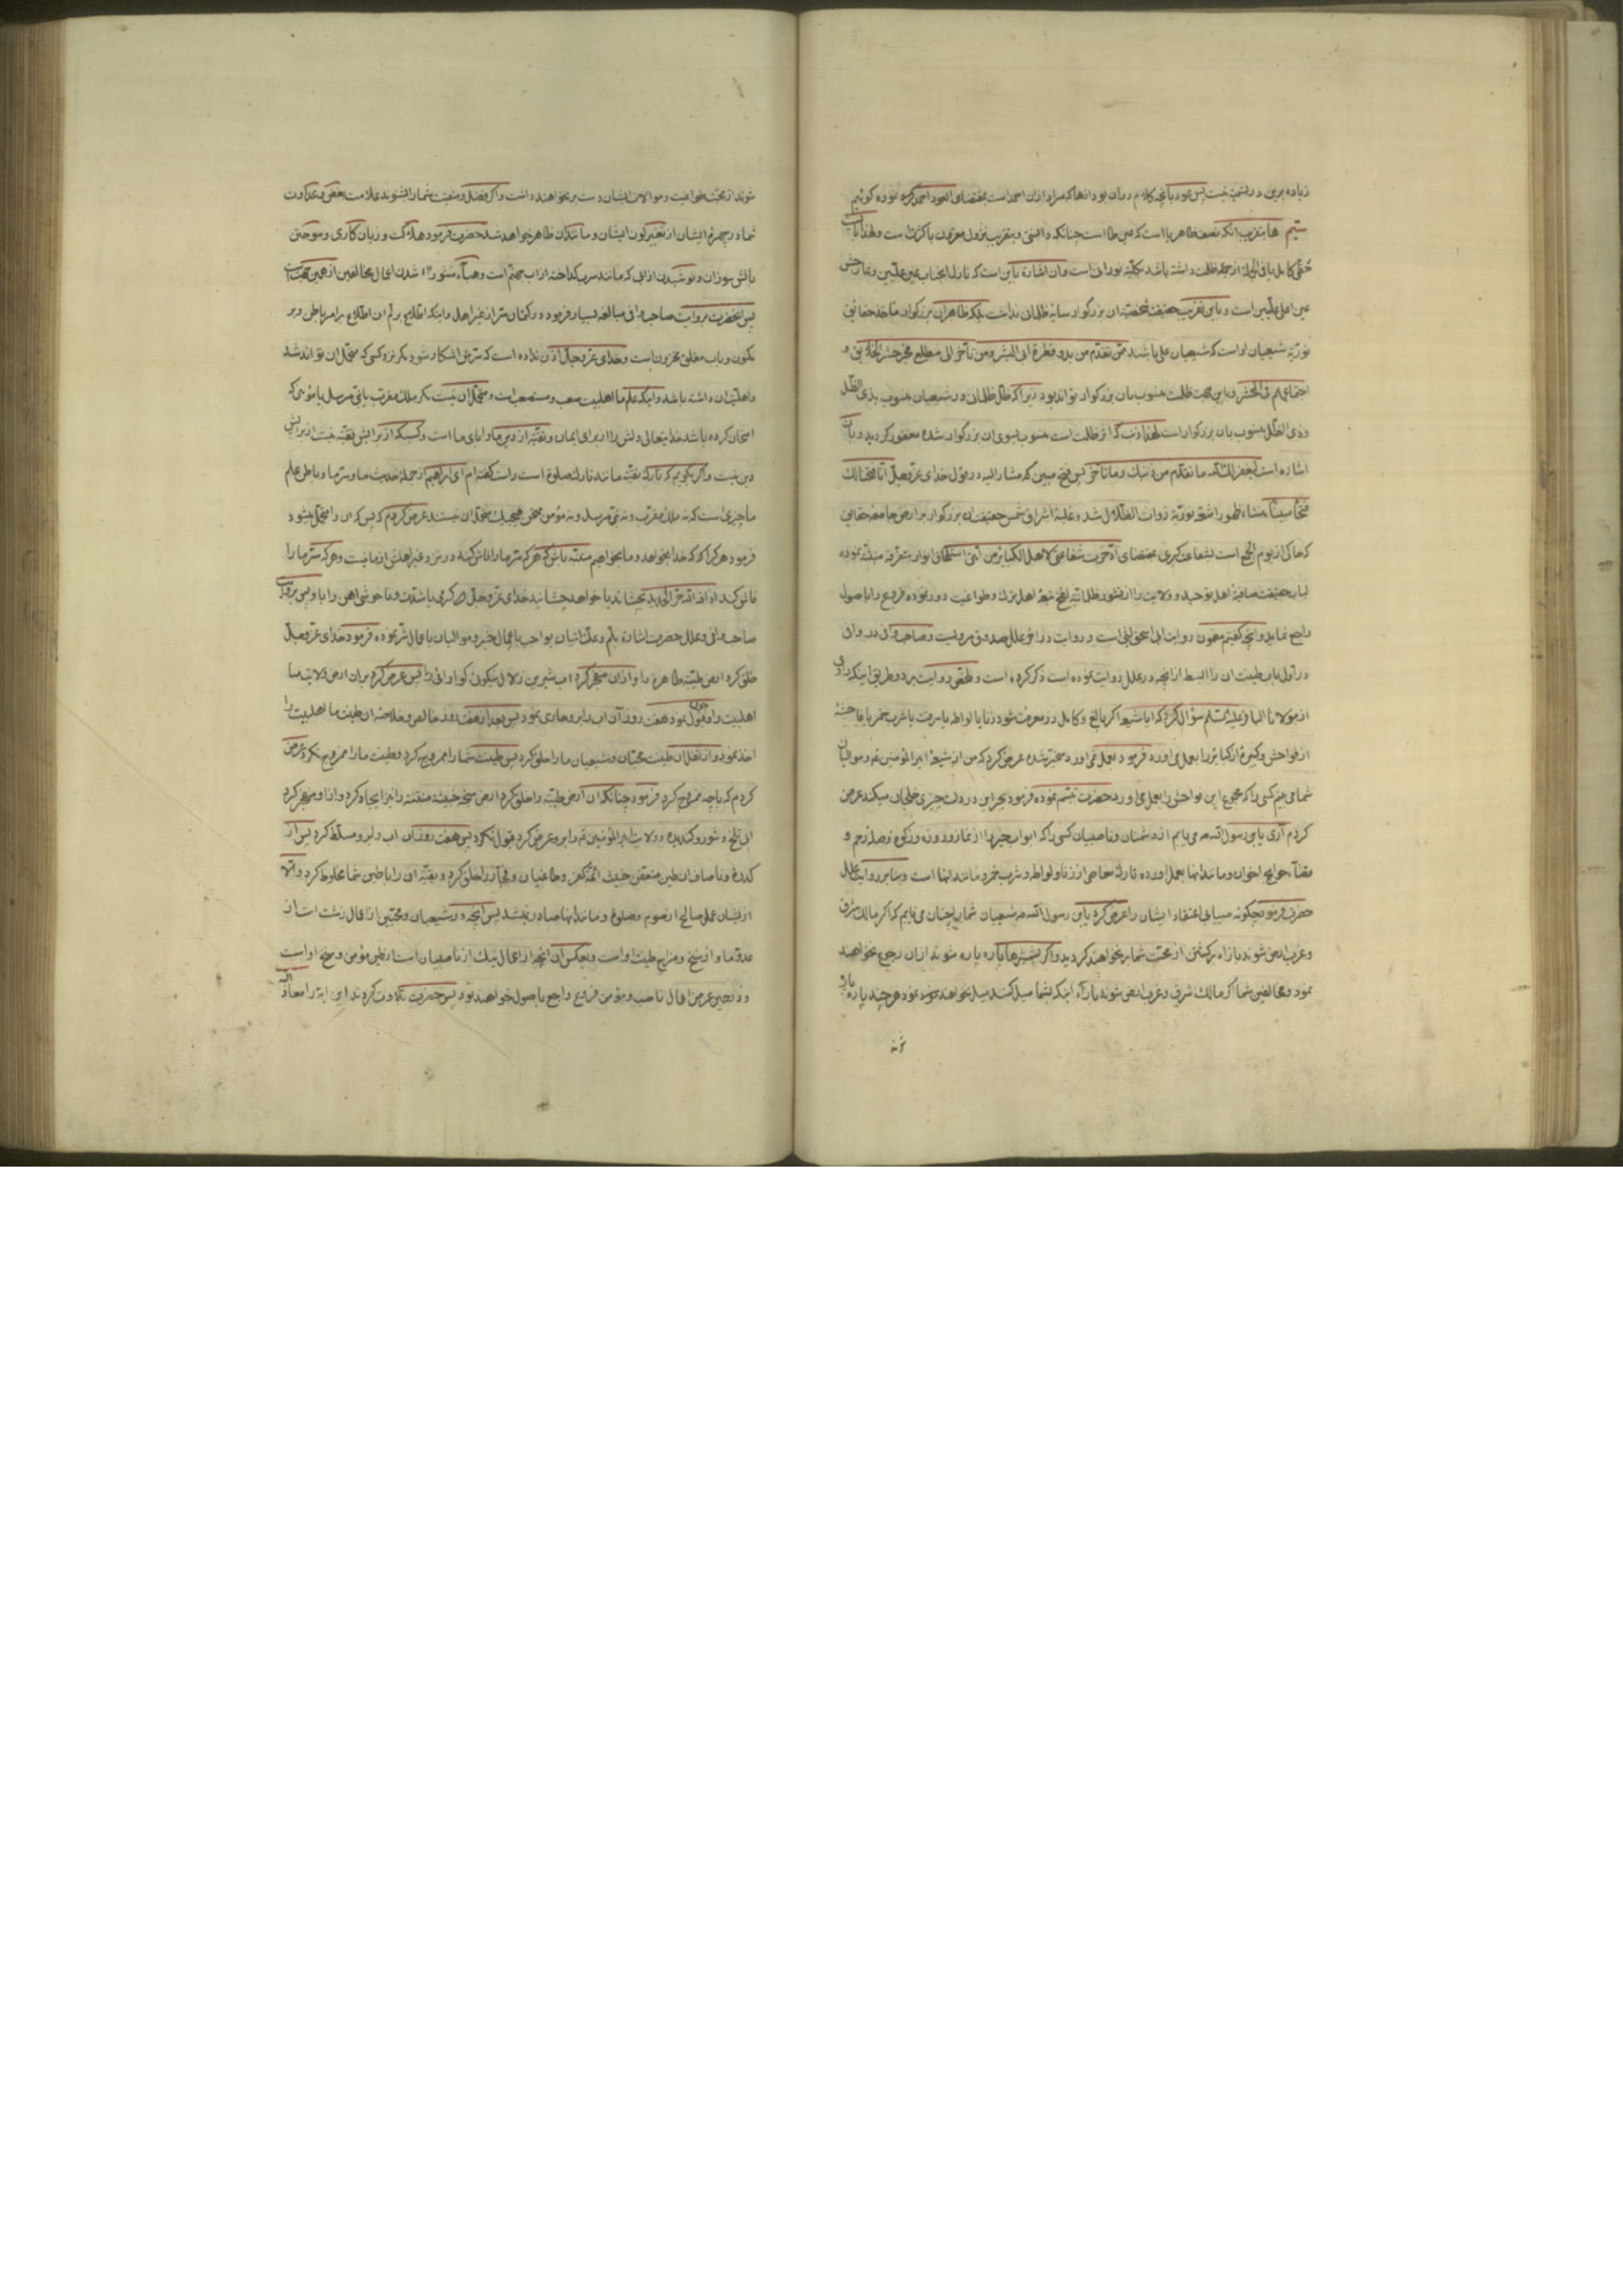 زیاده برین در تسمیه نیست پس عود بآنچه کلام در ان بود ازها که مراد ازان احمد است بمقتضای العود احمد کرده نموده کوئیم
ستیم ها بتقریب انکه نصف ظاهر یا است که عین طا است چنانکه دانستی و بتقریب نزول مقرون باکثرات است ولهذا بآن
عین اعلی علیین است و باین تقریب حقیقت محضیه ان بزرکوار سایه ظلمانی نداشت بلکه ظاهر ان بزرکوار ماخذ حقایق
نوریه شیعیان اواست که شیعیان علی باشند ممن تقدم من بدو فطرة ابی البشر و من تأخر الی مطلع فجر حشر الخلایق و
اجتماعهم فی الحشر و باین جهت ظلمت منسوب بان بزرکوار تواند بود زیرا که ظل ظلمانی در شیعیان منسوب بذی الظل
وذی الظل منسوب بان بزرکوار است لهذا ذنب که اثر ظلمت است منسوب بسوی ان بزرکوار شده مغفور کردید و بآن
اشاره است لیغفر لک الله ما تقدم من ذنبک وما تاخر پس فتح مبین که مشار الیه در قول خدای عز وجل انا فتحنا لک
فتحا مبینا منشاء ظهور اشعه نوریه ذوات الظلال شد و غلبه اشراق شمس حقیقت ان بزرکوار بر اراضی جامعه حقایق
که حاکی از یوم الجمع است بشفاعت کبری بمقتضای ادخرت شفاعتی لاهل الکبایر من امتی استیفای انوار متفرقه منبثه نموده
لباب حقیقت صافیه اهل توحید و ولایت را از قشور ظلمانیه اهل شرک وطواغیت دور نموده فروع را با صول
راجع نماید وآنچه کفتیم مضمون روایت ابی اسحق لیثی است و روایت در اخر علل صدوق مرویست وصاحب وافی در وافی
در اول باب طینت ان را ابسط از انچه در علل روایت نموده است ذکر کرده است و ملخص روایت بر دو طریق اینکه راوی
از مولانا الباقر علیه السلام سؤال کرد که ایا شیعه اکر بالغ وکامل در معرفت شود زنا یا لواطه یا سرقت یا شرب خمر یا فاحشه
از فواحش وکبیره از کبایر را بعمل می اورد فرمود بعمل نمی اورد متحیر شده عرض کرد که من از شیعه امیر المؤمنین عم و موالیان
شما می بینم کسی را که مجموع این فواحش را بعمل می اورد حضرت تبسم نموده فرمود بجز این در دلت چیزی خلجان میکند عرض
کردم آری یا بن رسول الله ص می یابم از دشمنان وناصبیان کسی را که ابواب خیر را از نماز وروزه و زکوة وصله رحم و
قضاء حوایج اخوان ومانند انها بعمل اورده تارک معاصی از زنا ولواطه وشرب خمر ومانند انها است و بنابر روایت علل
حضرت فرمود چکونه میبابی اعتقاد ایشان را عرض کرد یا بن رسول الله ص شیعیان شما را چنان می یابم که اکر ما لک شرق
وغرب ارض شوند بازاء برکشتن از محبت شما برنخواهند کردید و اکر بشمشیرها پاره پاره شوند ازان رجوع نخواهند
نمود و مخالفین شما اکر مالک شرق وغرب ارض شوند بازآء اینکه بشما میل کنند میل نخواهند نمود هرچند پاره پاره
شوند از محبت طواغیت وموالات ایشان دست برنخواهند داشت واکر فضل ومنقبت شما را بشنوند علامت بغض وعداوت
شما در چهره ایشان از تغییر لون ایشان و مانند ان ظاهر خواهد شد حضرت فرمود هلاکت وزیان کاری وسوختن
باتش سوزان ونوشیدن از ابی که مانند سرب کداخته ازاب جهنم است وهبآء منثورا شدن اعمال مخالفین ازهمین جهت است
پس انحضرت بروایت صاحب وافی مبالغه بسیار فرموده در کتمان سر از غیر اهل واینکه اطلاع بر لم ان اطلاع برامر باطن وسر
مکنون و باب مغلق مخزون است وخدای عز وجل اذن نداده است که سرش اشکار شود مکر نزد کسی که متحمل ان تواند شد
واهلیت ان داشته باشد و اینکه علم ما اهلبیت صعب ومستصعب است ومتحمل ان نیست مکر ملک مقرب یا نبی مرسل یا مؤمنی که
امتحان کرده باشد خدایتعالی دلش را از برای ایمان وتقیه از دین ما وابای ما است وکسیکه از برایش تقیه نیست از برایش
دین نیست واکر بکویم که تارک تقیه مانند تارک صلوة است راست کفته ام ای ابراهیم از جمله حدیث ما وسر ما وباطن علم
ما چیزی است که نه ملک مقرب ونه نبی مرسل ونه مؤمن ممتحن هیچیک متحمل ان نیستند عرض کردم که پس که ان را متحمل میشود
فرمود هرکرا که خدا بخواهد وما بخواهیم متنبه باش که هرکه سر ما را فاش کند در نزد غیر اهلش ازما نیست وهرکه سر ما را
فاش کند اذاقه الله حر الحدید بچشاند یا خواهد چشانید خدای عز وجل اورا کرمی باشدت وناخوشی اهن را با و پس بروایت
صاحب وافی وعلل حضرت اشاره بلم وعلت اتیان نواصب باعمال خیر وموالیان باعمال شر نموده فرمود خدای عز وجل
خلق کرد ارض طیبه طاهره را و ازان منفجر کرد اب شیرین زلال نیکوی کوارائی را پس عرض کرد بران ارض ولایت ما
اهلبیت را وقبول نمود هفت روز آن اب را بر او جاری نمود پس بعد از هفت روز خالص وخلاصه ان طینت ما اهلبیت را
اخذ نمود و از ثفل ان طینت محبان وشیعیان ما را خلق کرد پس طینت شما را ممزوج کرد وطینت ما را ممزوج نکرد عرض
کردم که باچه ممزوج کرد فرمود چنانکه ان ارض طیبه را خلق کرد ارض سبخه خبیثه منتنه را نیز ایجاد کرد و ازاو منفجر کرد
اب تلخ وشور وکندیده وولایت امیر المؤمنین عم را بر او عرض کرد قبول نکرد پس هفت روز ان اب را بر او مسلط کرد پس از
کدره وناصاف ان طین متعفن خبیث ائمه کفر وطاغیان و فجار را خلق کرد و بقیه ان را باطین شما مخلوط کرد والا
ازیشان عمل صالح از صوم وصلوة و مانند انها صادر نمیشد پس آنچه در شیعیان ومحبین از اعمال زشت است از
عدو ما واز سنخ ومزاج طینت او است وبعکس ان انچه از اعمال نیک از ناصبیان است از طین مؤمن وسنخ او است
ودر حین عرض اعمال ناصب ومؤمن فروع راجع باصول خواهند بود پس حضرت تلاوت کردند این ایه را معاذ الله